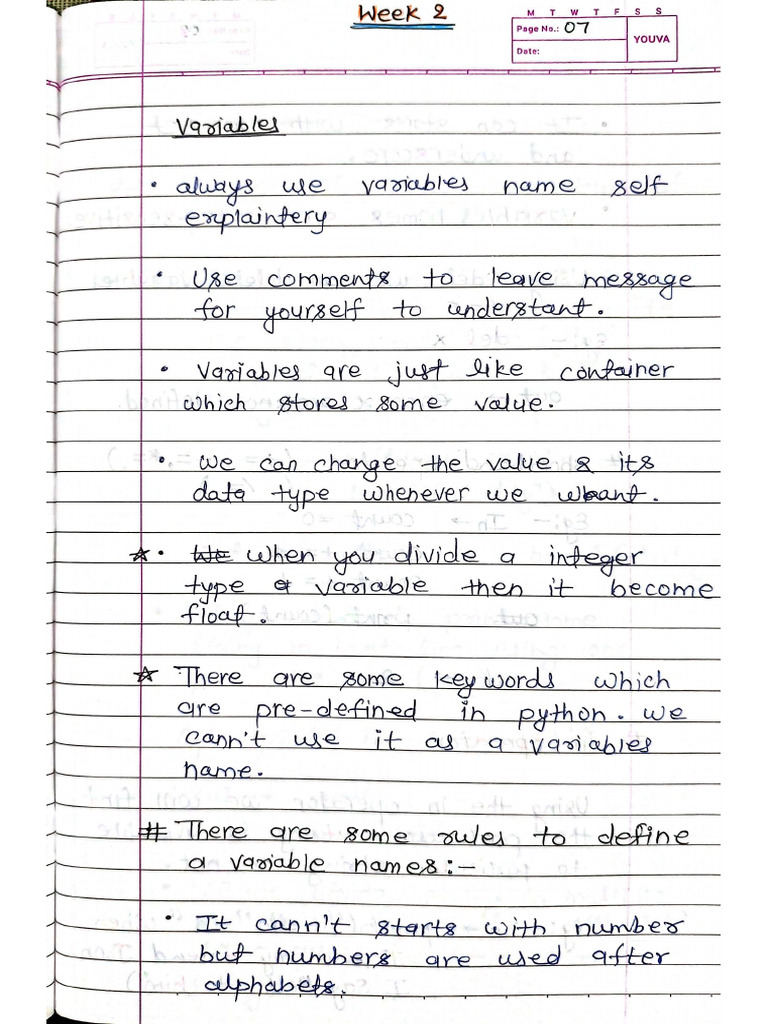 Week 2
M T W T F S S
Page No.: 07
Date:
YOUVA
Variables
• always use variables name self
explaintery
• Use comments to leave message
for yourself to understant.
• Variables are just like container
which stores some value.
• we can change the value & its
data type whenever we want.
☆ • We when you divide a integer
type variable then it become
float.
☆ There are some key words which
are pre-defined in python. we
cann't use it as a variables
name.
# There are some rules to define
a variable names:-
• It cann't starts with number
but numbers are used after
alphabets.